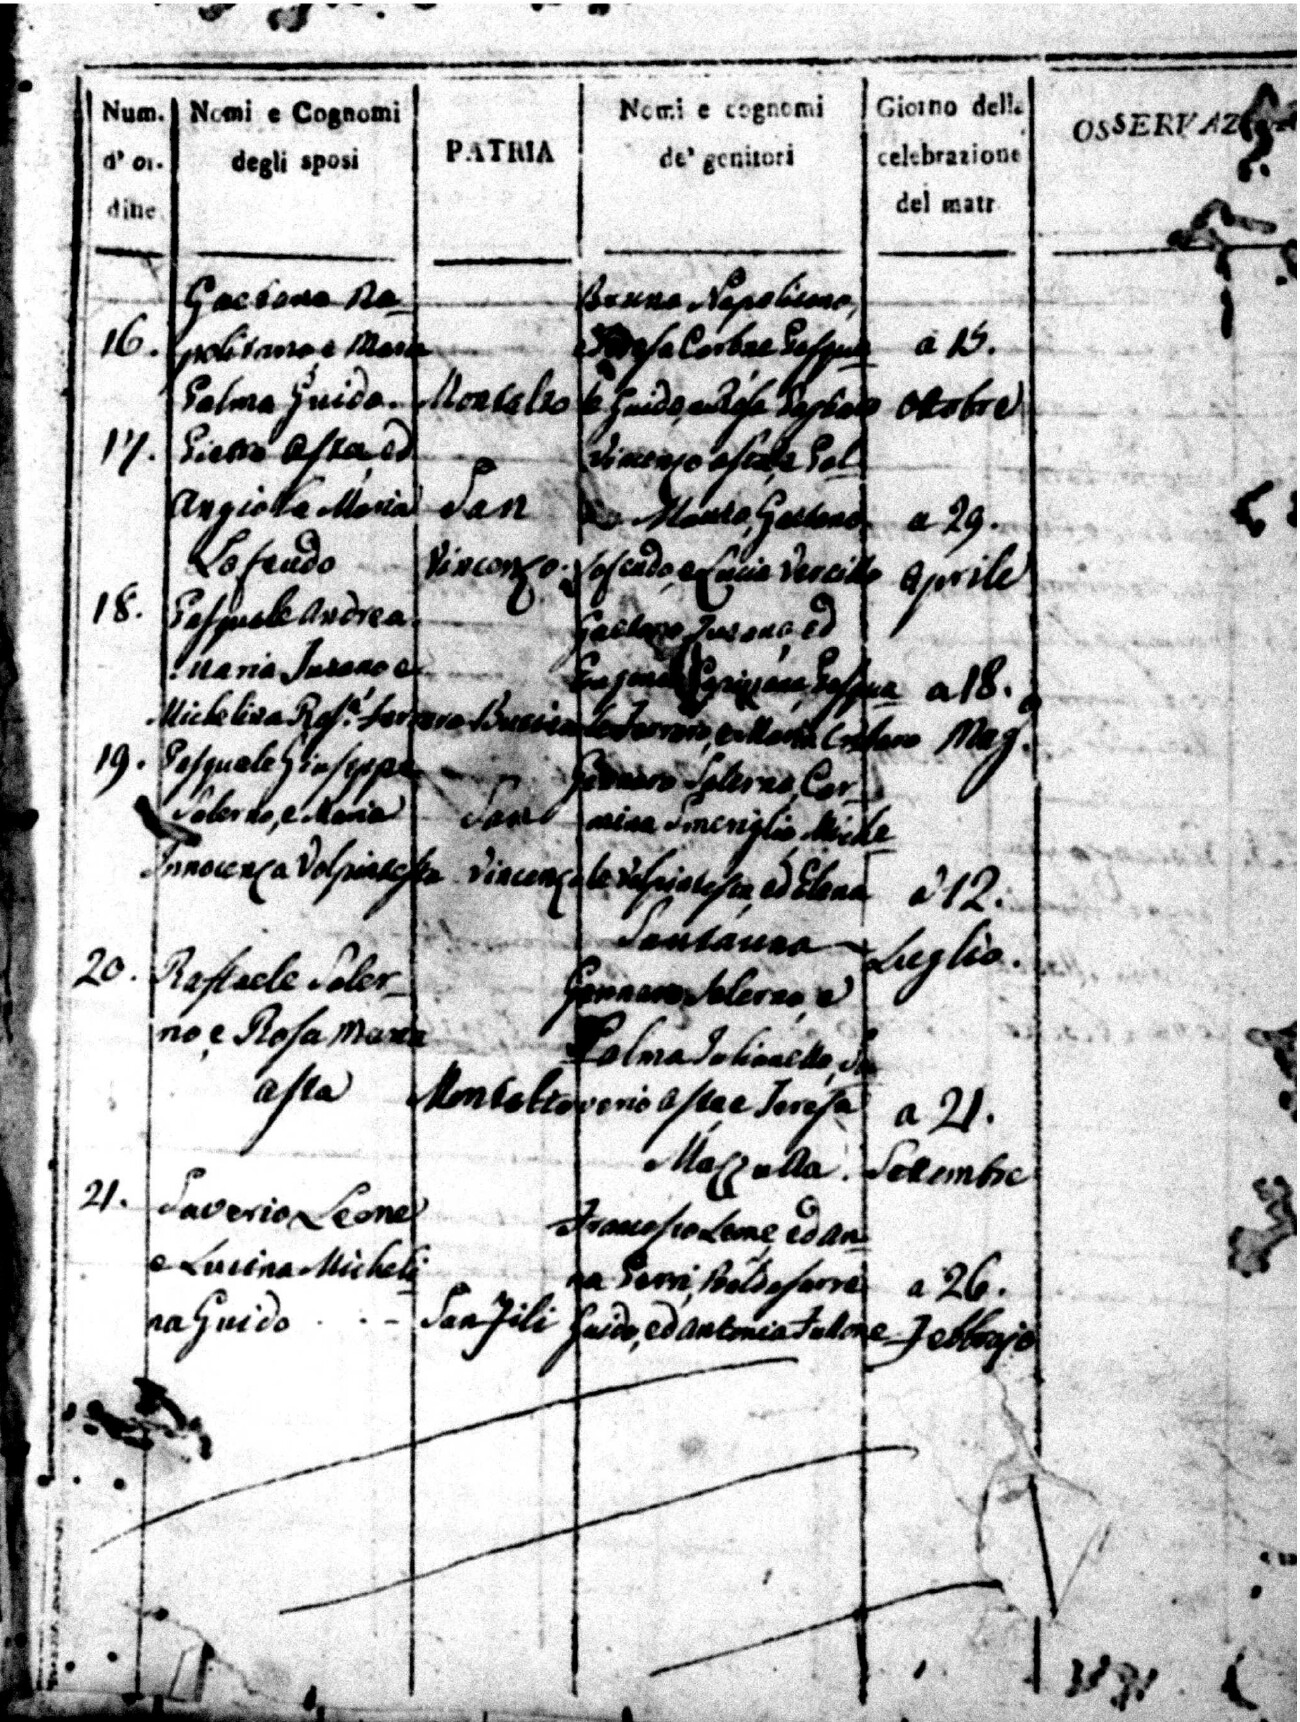 Num. d'or. dine
Nomi e Cognomi degli sposi
PATRIA
Nomi e cognomi de' genitori
Giorno della celebrazione del matr.
OSSERVAZ
16.
Gaetano Na-
politano e Maria
Palma Guido.
Montalto
Bruno Napolitano,
Teresa Pasqua
le Guido, e Rosa
a 15.
Ottobre
17.
Pietro Asta, ed
Angiola Maria
Lofeudo
San
Vincenzo.
Vincenzo Asta, e
Gaetano
Lofeudo, e Lucia Vercillo
a 29.
Aprile
18.
Pasquale Andrea
Maria Turano e
Michelina Ros.ª Ferraro
Gaetano Turano, ed
Pasqua
le Ferraro, e Maria
a 18.
Mag.
19.
Pasquale Giuseppe
Salerno, e Maria
Innocenza Volpintesta
San
Vincenzo
Gennaro Salerno, Car-
mina Smeriglio, Miche
le Volpintesta, ed Elena
Santanna
a 12.
Luglio.
20.
Raffaele Saler-
no, e Rosa Maria
Asta
Montalto
Gennaro Salerno, e
Palma
verio Asta e Teresa
Mazzulla.
a 21.
Settembre
21.
Saverio Leone
e Lucina Micheli
na Guido
San Fili
Francesco Leone, ed An-
na Perri, Baldasarre
Guido, ed Antonia
a 26.
Febbrajo